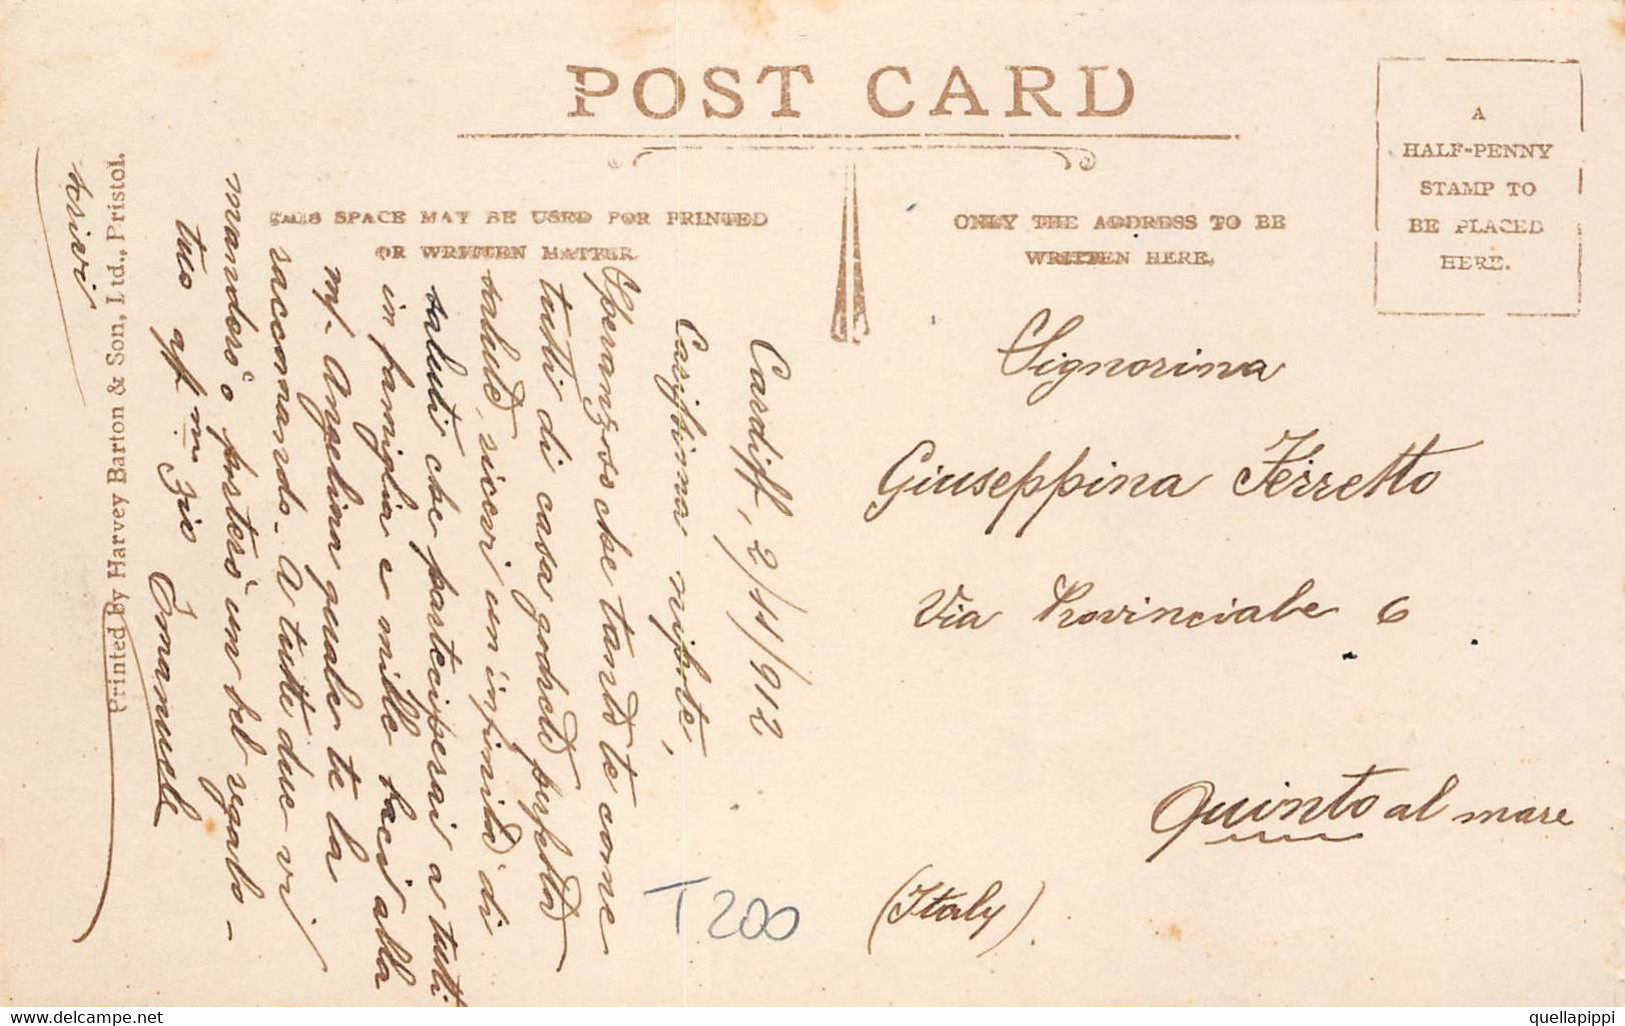 POST CARD
THIS SPACE MAY BE USED FOR PRINTED
OR WRITTEN MATTER.
ONLY THE ADDRESS TO BE
WRITTEN HERE.
A
HALF-PENNY
STAMP TO
BE PLACED
HERE.
Cardiff, 2/11/912
Carissima nipote,
Speranzoso che tanto te come
tutti di casa godrete perfetta
salute, ricevi un'infinità di
saluti che parteciperai a tutti
in famiglia e mille baci alla
Angelina qualer te la
raccomando. A tutte due vi
manderò o porterò un bel regalo -
tuo aff.mo zio Emanuele
Signorina
Giuseppina Ferretto
Via Provinciale 6
Quinto al mare
(Italy)
T 200
Printed By Harvey Barton & Son, Ltd., Bristol.
delcampe.net
quellapippi